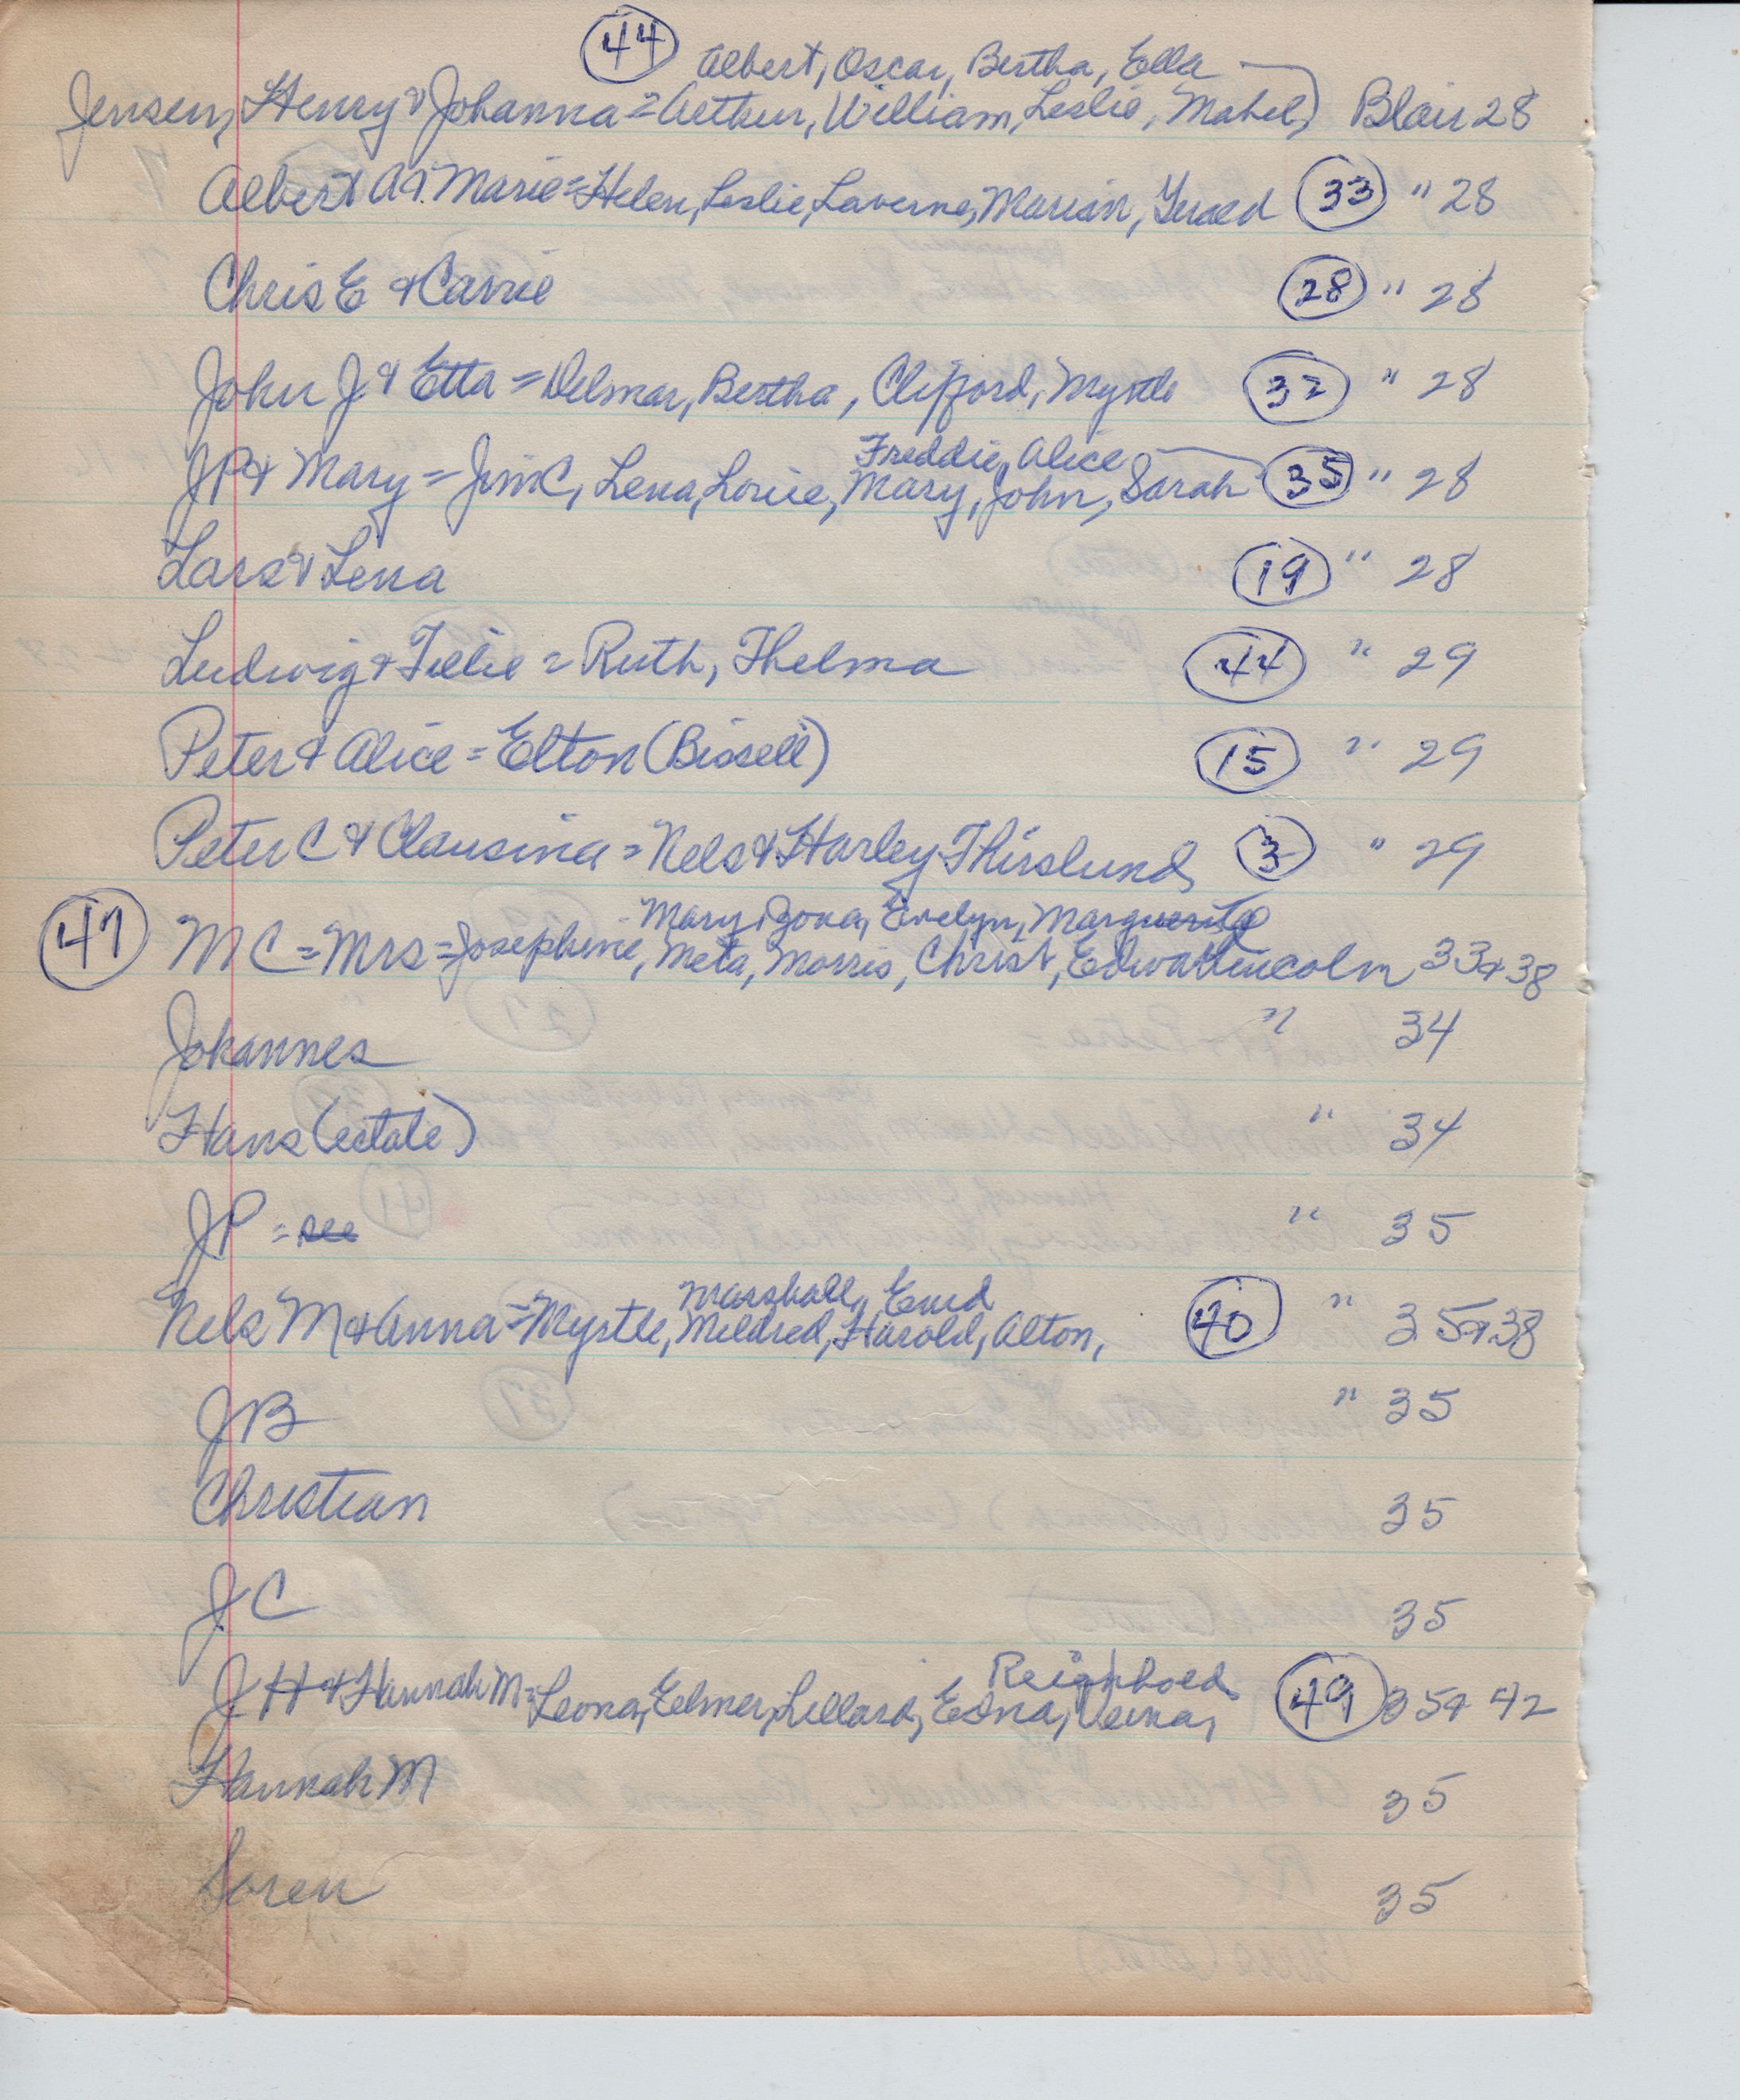 (44) Albert, Oscar, Bertha, Ella
Jensen, Henry & Johanna = Arthur, William, Leslie, Mabel) Blair 28
Albert A & Marie = Helen, Leslie, Laverne, Marian, Gerald (33) " 28
Chris E & Carrie (28) " 28
John J & Etta = Delmar, Bertha, Clifford, Myrtle (32) " 28
Freddie, Alice
JP & Mary = Jim C, Lena, Louie, Mary, John, Sarah (35) " 28
Lars & Lena (19) " 28
Ludwig & Tillie = Ruth, Thelma (44) " 29
Peter & Alice = Elton (Bissell) (15) " 29
Peter C & Clausina = Nels & Harley Thirslund (3) " 29
Mary, Zona, Evelyn, Marguerite
(47) MC = Mrs = Josephine, Meta, Morris, Christ, Edward Lincoln 33 & 38
Johannes " 34
Hans (estate) " 34
JP = see " 35
Marshall, Enid
Nels M & Anna = Myrtle, Mildred, Harold, Alton, (40) " 35 & 38
JB " 35
Christian 35
JC 35
Reighhold
J H & Hannah M = Leona, Eelmer, Lillard, Edna, Verna, (49) 35 & 42
Hannah M 35
Soren 35